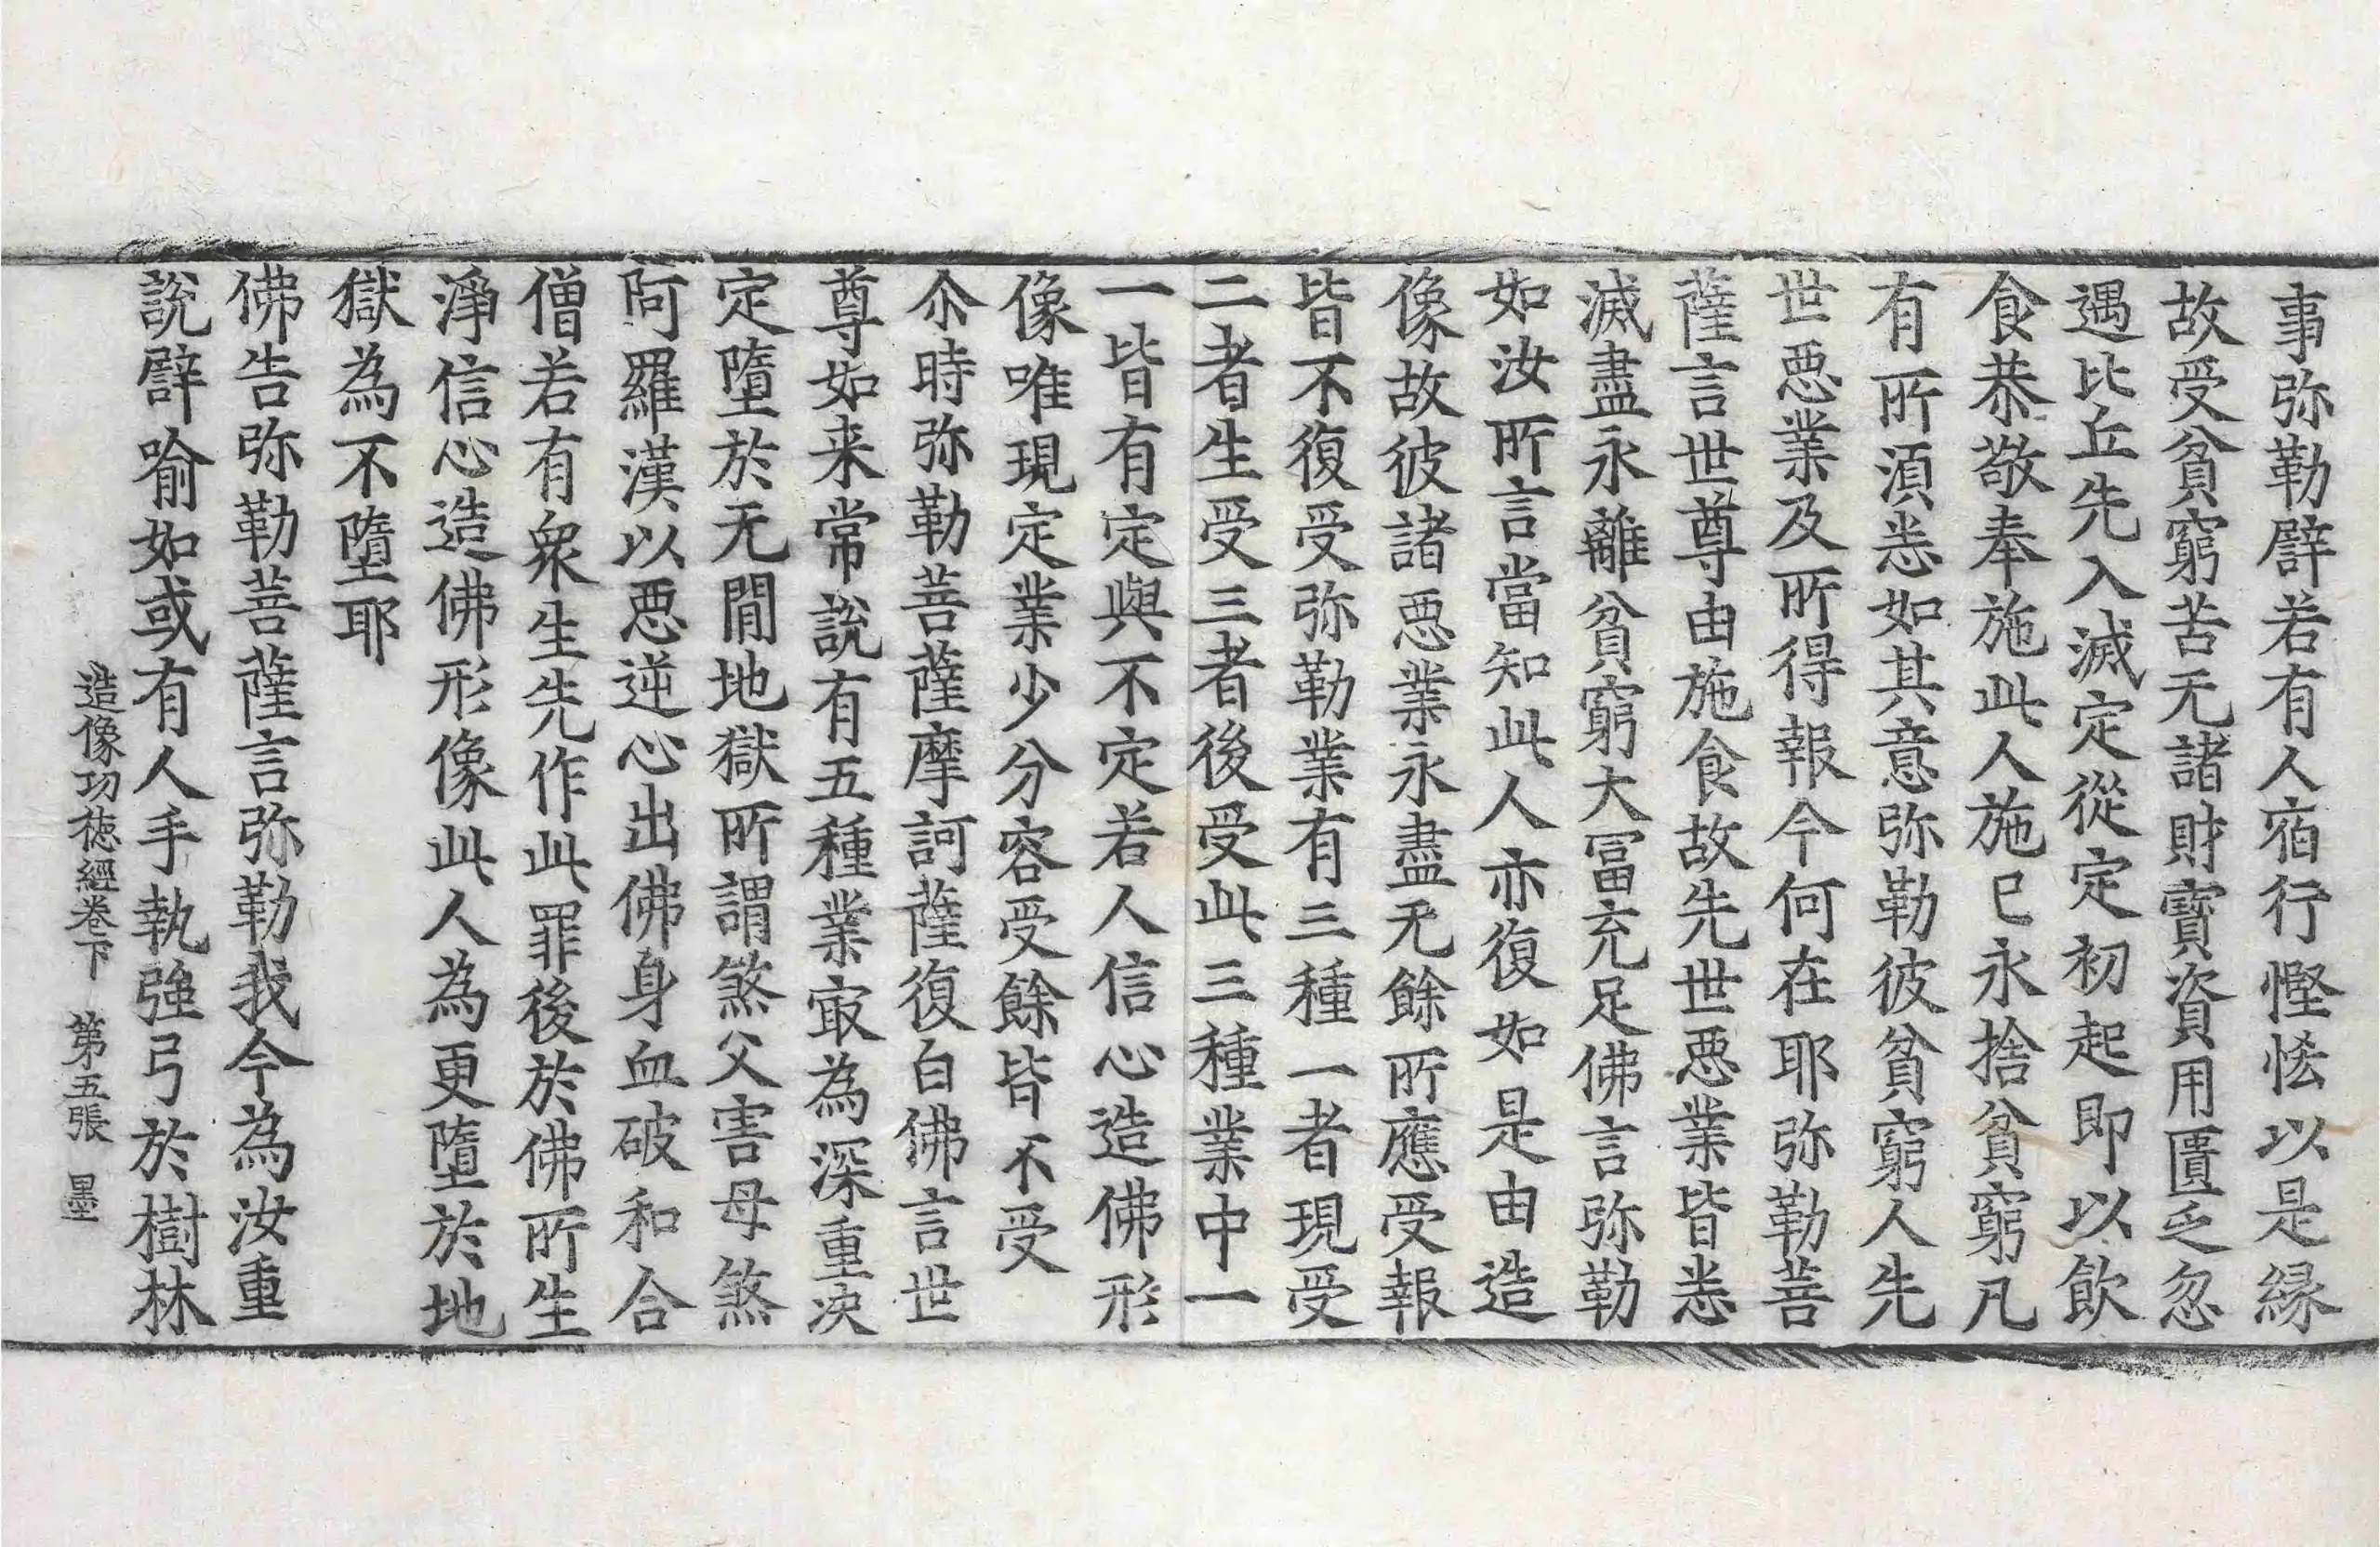 事弥勒辟若有人宿行慳悋以是緣
故受貧窮苦无諸財寶資用匱乏忽
遇比丘先入滅定從定初起即以飲
食恭敬奉施此人施已永捨貧窮凡
有所湏悉如其意弥勒彼貧窮人先
世惡業及所得報今何在耶弥勒菩
薩言世尊由施食故先世惡業皆悉
滅盡永離貧窮大冨充足佛言弥勒
如汝所言當知此人亦復如是由造
像故彼諸惡業永盡无餘所應受報
皆不復受弥勒業有三種一者現受
二者生受三者後受此三種業中一
一皆有定與不定若人信心造佛形
像唯現定業少分容受餘皆不受
尒時弥勒菩薩摩訶薩復白佛言世
尊如来常說有五種業㝡為深重决
定墮於无閒地獄所謂煞父害母煞
阿羅漢以惡逆心出佛身血破和合
僧若有衆生先作此罪後於佛所生
淨信心造佛形像此人為更墮於地
獄為不墮耶
佛告弥勒菩薩言弥勒我今為汝重
說辟喻如或有人手執強弓於樹林
造像功徳經卷下 第五張 墨